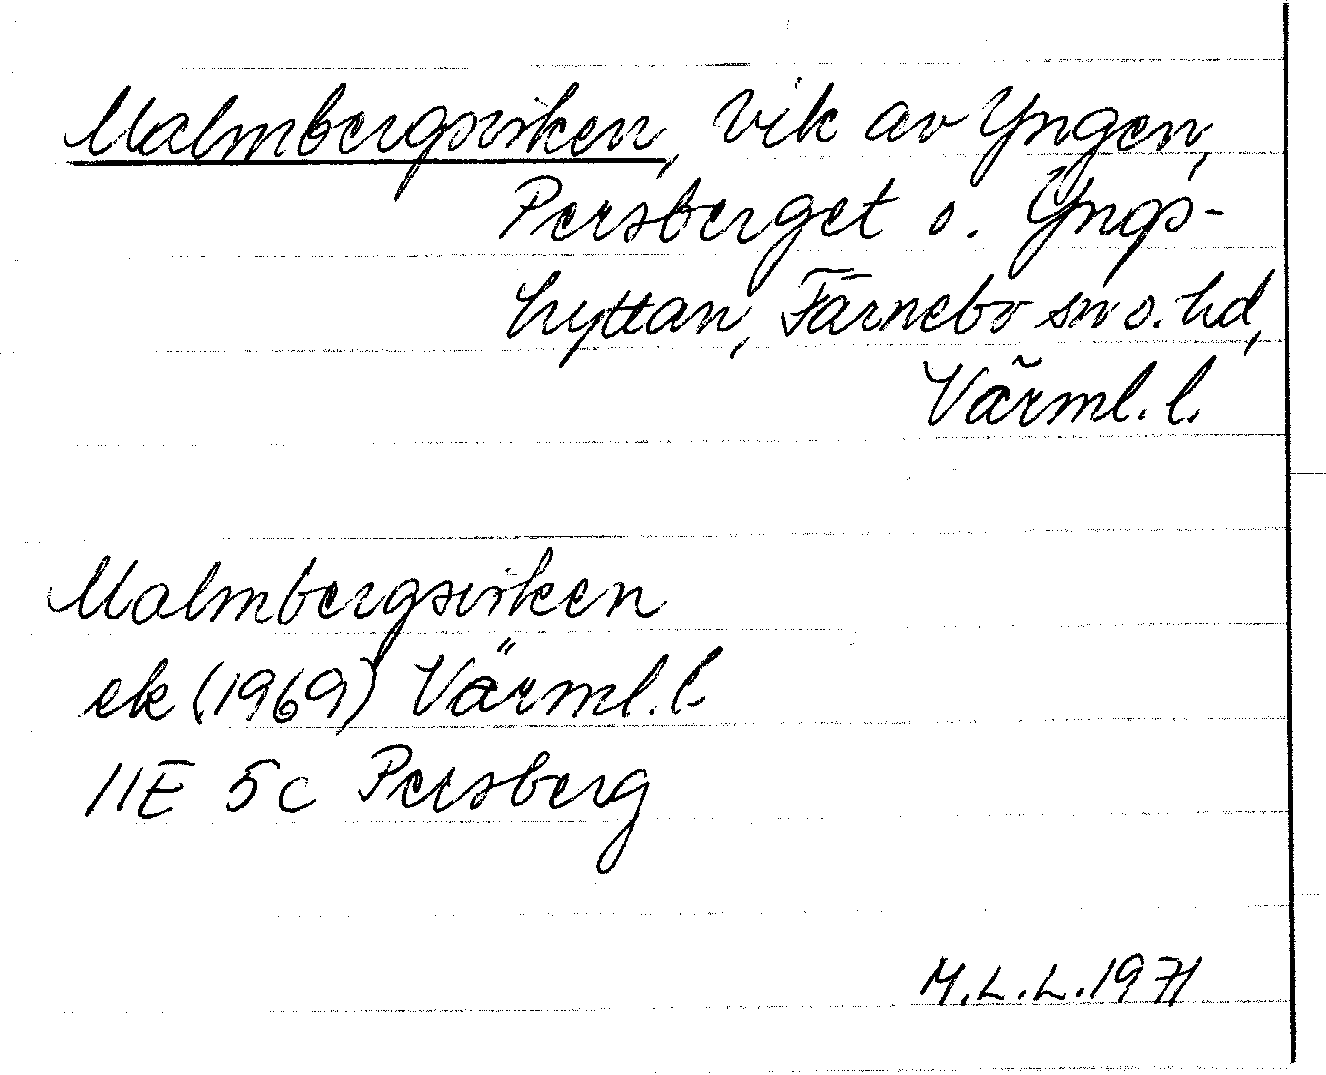 Malmbergsviken, vik av Yngen,
Persberget o. Yngs-
hyttan, Färnebo sn o. hd,
Värml. l.
Malmbergsviken
ek (1969) Värml. l.
11E 5c Persberg
M.L.L. 1971